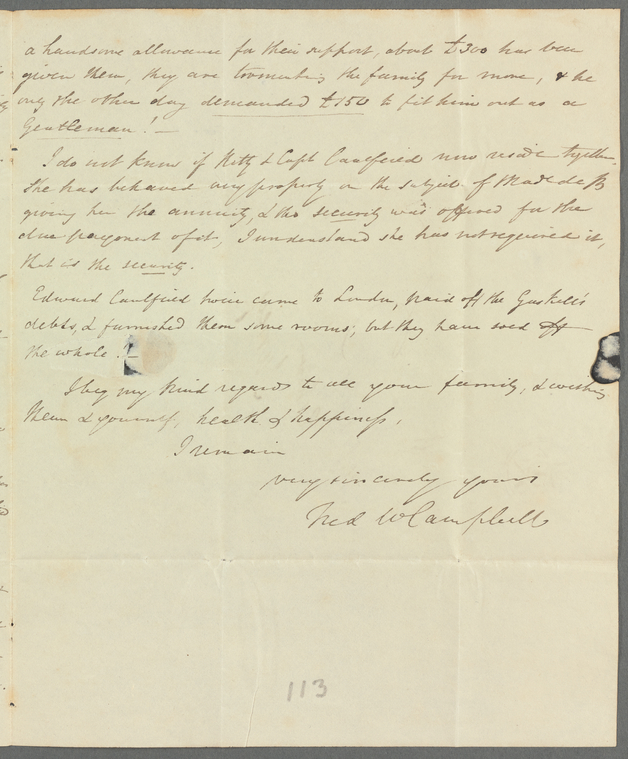 a handsome allowance for their support, about £300 has been
given them, they are tormenting the family for more, & he
only the other day demanded £150 to fit him out as a
Gentleman! —
I do not know if Kitty & Capt Caulfeild now reside together.
She has behaved very properly on the subject of Made de B
giving her the annuity, & tho' security was offered for the
due payment of it, I understand she has not required it,
that is the security.
Edward Caulfield twice came to London, paid off the Gaskell's
debts, & furnished them some rooms, but they have soed off
the whole! —
I beg my kind regards to all your family, & wishing
them & yourself, health & happiness,
I remain
very sincerely yours
Fred W Campbell
113